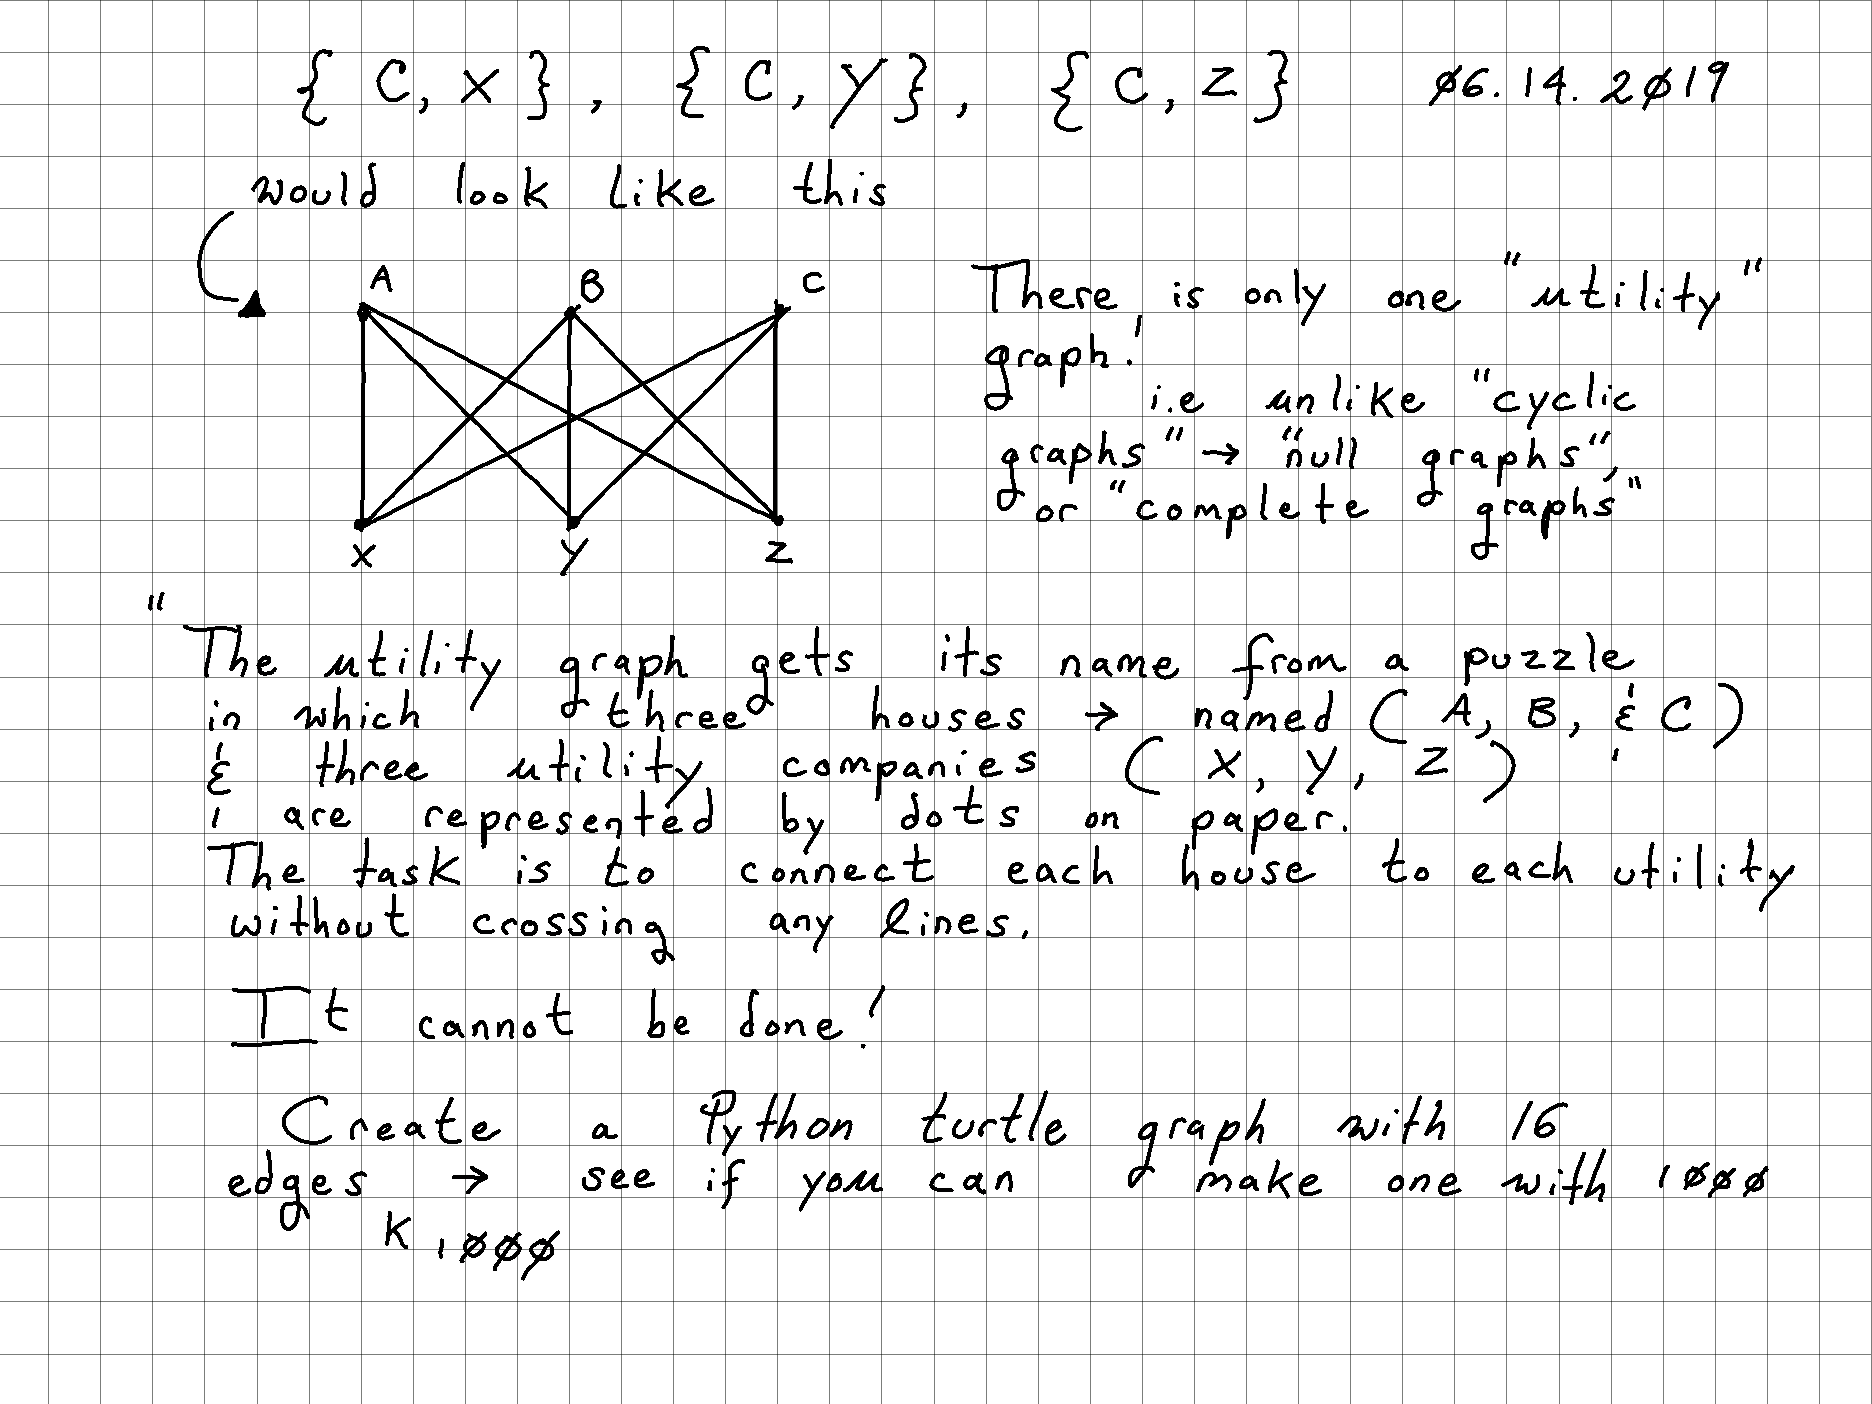 { C, X }, { C, Y }, { C, Z } 06.14.2019
would look like this
A B C
X Y Z
There is only one "utility"
graph!
i.e unlike "cyclic
graphs" → "null graphs",
or "complete graphs"
"
The utility graph gets its name from a puzzle
in which three houses → named ( A, B, & C )
& three utility companies ( X, Y, Z )
are represented by dots on paper.
The task is to connect each house to each utility
without crossing any lines.
It cannot be done!
Create a Python turtle graph with 16
edges → see if you can make one with 1000
K 1000